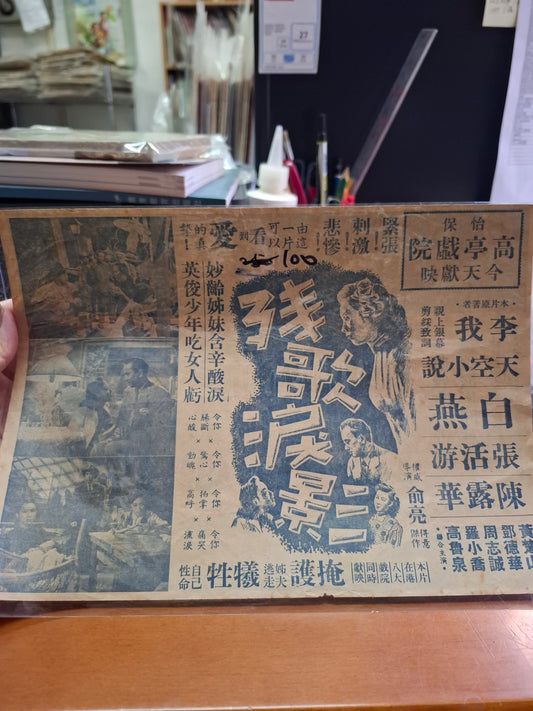 怡保
高亭戲院
今天獻映
本片原著者·
李我
親上銀幕
剪綵致詞
天空小說
白燕
張活游
陳露華
鄧德華
周志誠
羅小喬
高魯泉
·聯合主演·
緊張
刺激
悲慘
由這一片
可以看到
愛
的真摯
250 100
妙齡姊妹含辛酸淚
英俊少年吃女人虧
令你腸斷心酸
×
令你驚心動魄
×
令你拍掌高呼
×
令你痛哭流淚
殘歌淚影
二
權威導演
俞亮
得意傑作
本片在港
八大戲院
同時獻映
掩護姊夫逃走
犧牲自己性命
27